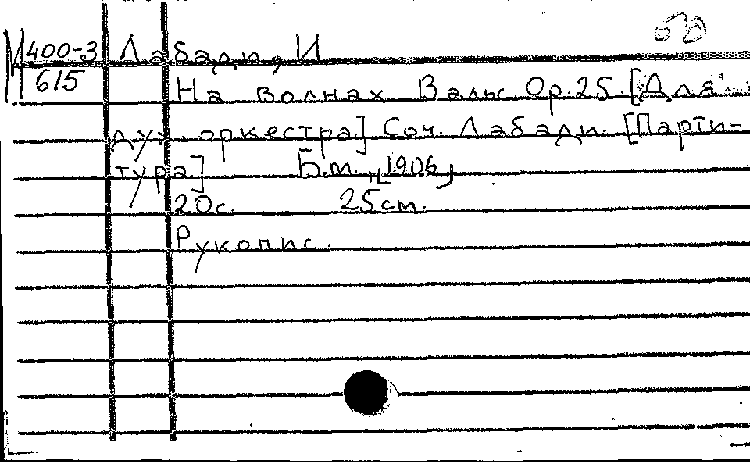 М 400-3 Лабади, И
615
На волнах Вальс Op. 25. [Для
дух. оркестра] Соч. Лабади. [Парти-
тура] Б.м. [1906]
20с. 25см.
Рукопис.